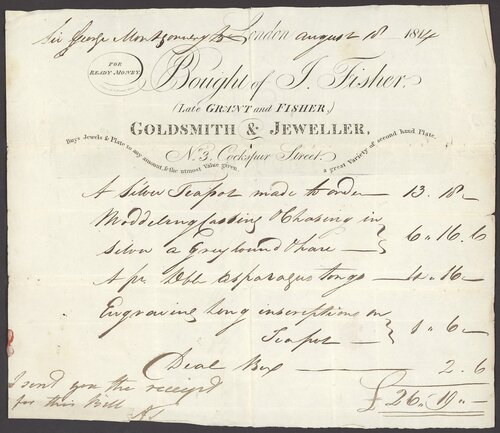 Sir George Montgomery Bt London August 18 1814
FOR
READY MONEY
Bought of J. Fisher,
(Late GRANT and FISHER,)
GOLDSMITH & JEWELLER,
Buys Jewels & Plate to any amount, & the utmost Value given.
No. 3, Cockspur Street.
a great Variety of second hand Plate.
A Silver Teapot made to order 13. 18 –
Moddeling Casting & Chasing in
Silver a Greyhound & hare — } 6 " 16. 6
A pr Dble Asparagus tongs — 4 " 16 –
Engraving long inscriptions on
Teapot — } 1 " 6 –
Deal Box — 2. 6
£ 26 " 19 " –
I send you the receipt
for this Bill